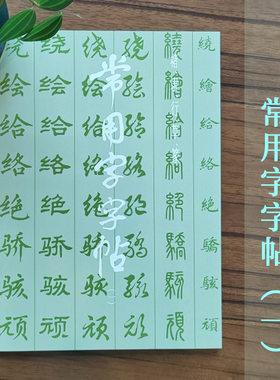 绕绘给络绝骄骇顽
绕绘给络绝骄骇顽
绕绘给络绝骄骇顽
绕绘给络绝骄骇顽
繞繪給絡絕驕駭頑
繞繪給絡絶驕駭頑
常用字字帖
(一)
常用字字帖(一)